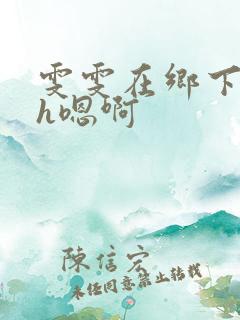 雯雯在鄉下
h嗯啊
陳信宏
未经同意禁止转载